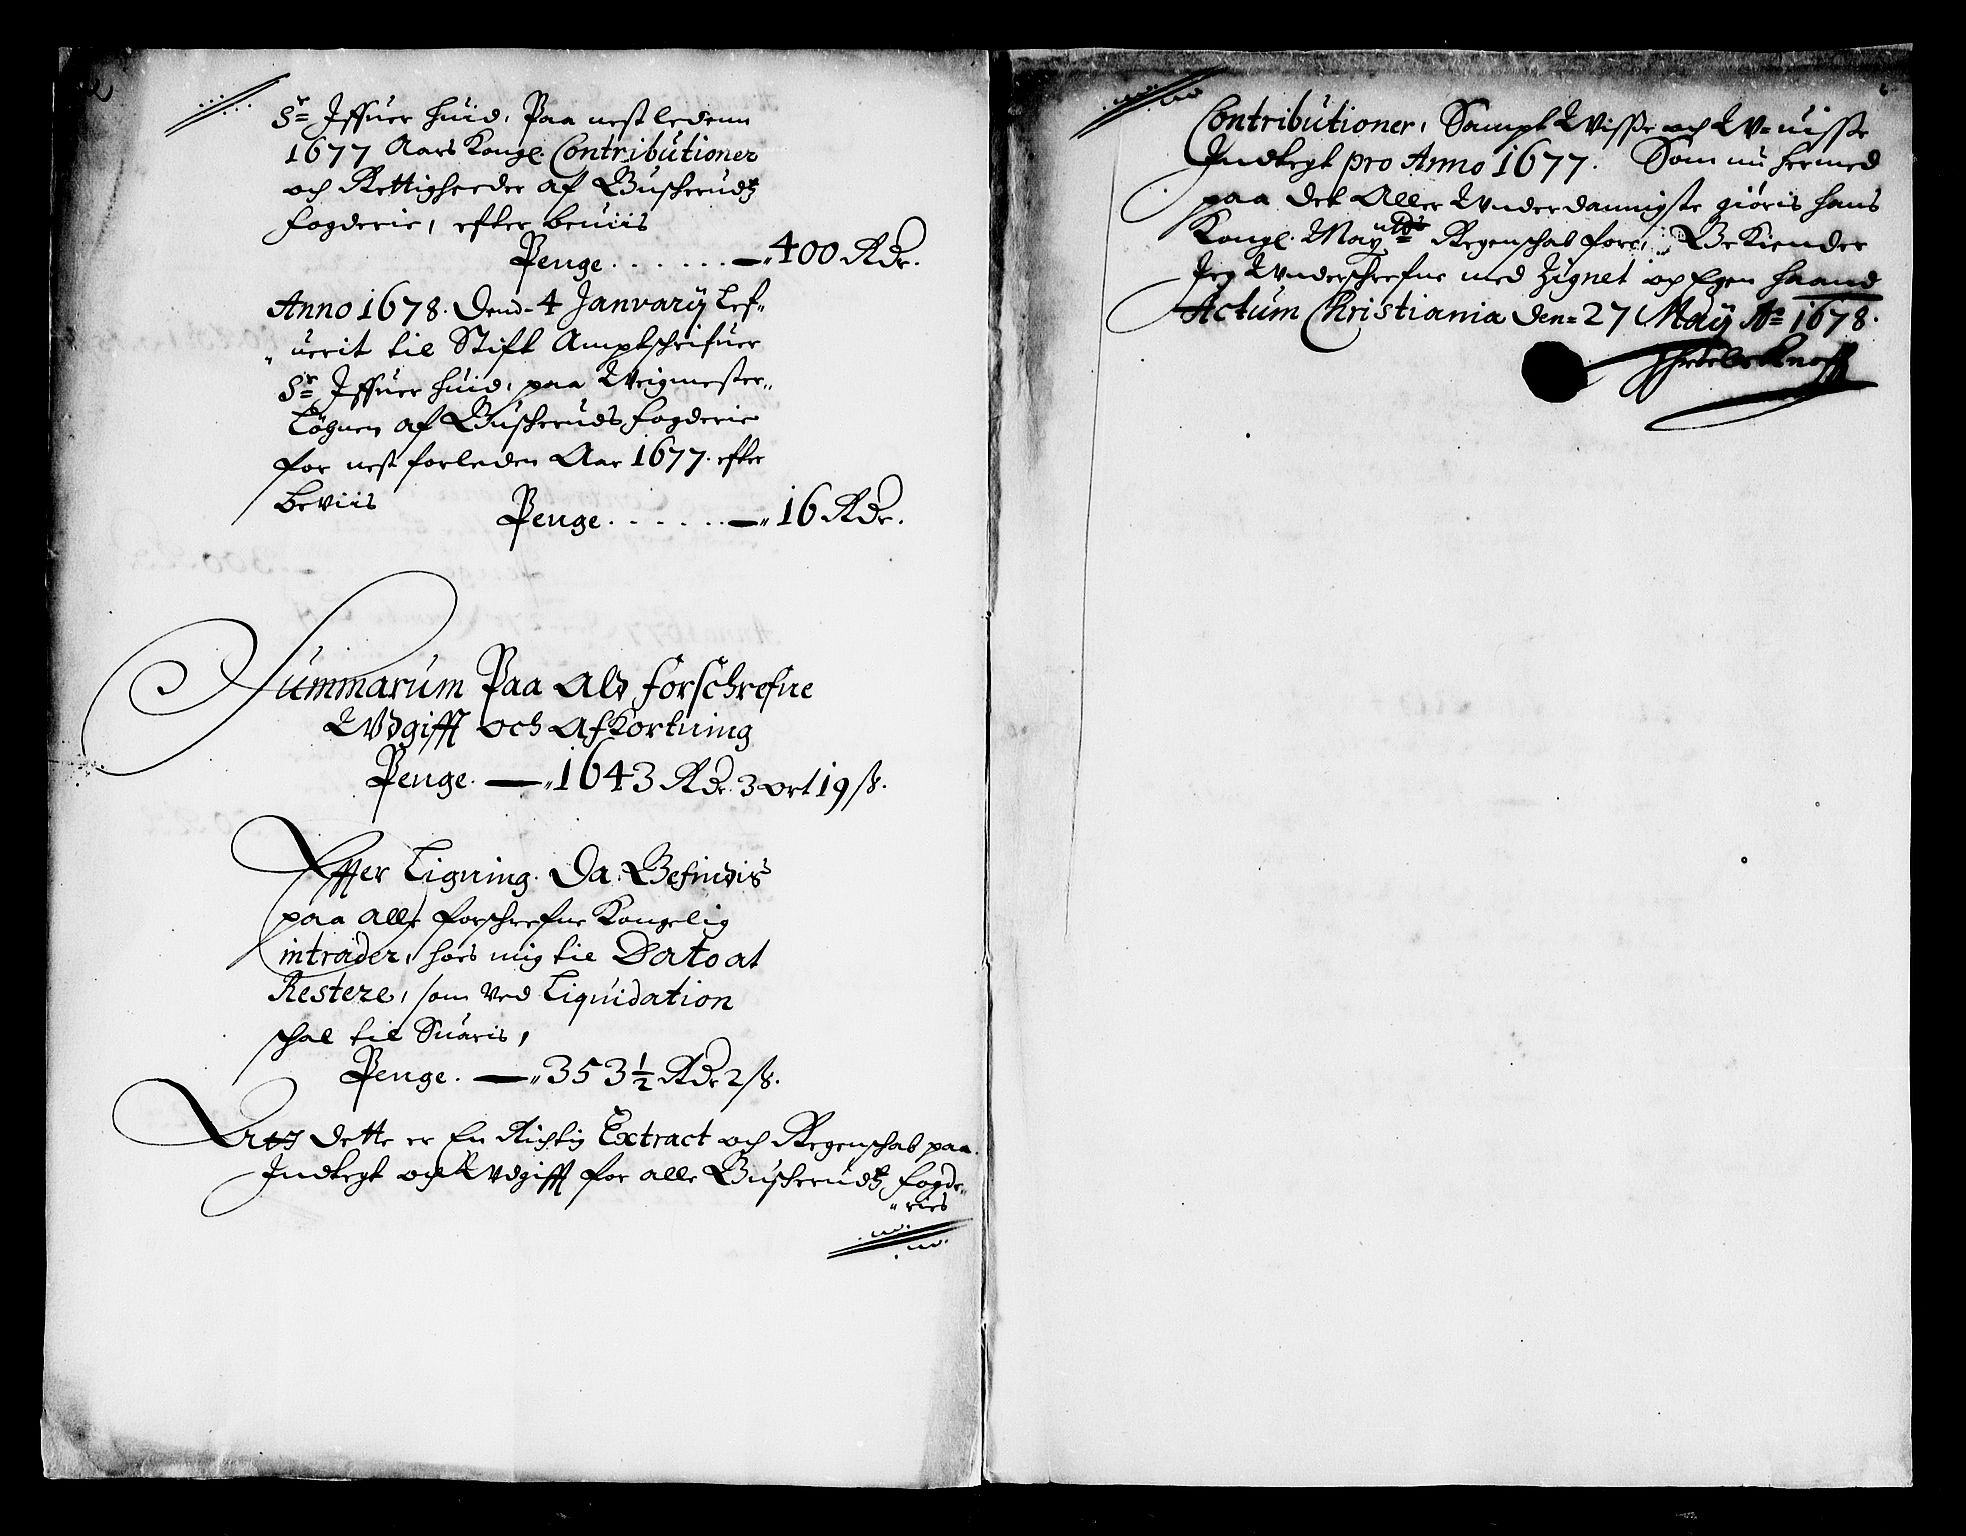 Sr Iffuer Huid, Paa nestledenn
1677 Aars Kongl. Contributioner
och Rettigheeder af Buscherudtz
fogderie, efter beuiis
Penge . . . . . . —„400 Rdr.
Anno 1678. Dend- 4 Janvarÿ Lef„
„uerit til Stift Amptschrifuer
Sr Iffuer Huid, paa Weigmester„
Løgnen af Buscheruds fogderie
for nest forleden Aar 1677. efter
Beviis
Penge . . . . . . —„16 Rdr.
Summarum Paa Ald forschrefne
Wdgifft och Afkortning
Penge. —„1643 Rdr. 3 ort 19 ß.
Effter Ligning. Da Befindis
paa alle forschrefne Kongelig
intrader, hoes mig til Dato at
Restere, som ved Liquidation
schal til Suaris,
Penge. —„353½ Rdr 2 ß.
dette er En Richtig Extract och Regenschab paa
Indtegt och Wdgifft for alle Buscherudtz fogde„
„ries
Contributioner, Sampt Wisse och W=uisse
Indtegt pro Anno 1677. Som nu hermed
paa det Aller Wnderdannigste giöris hans
Kongl. Maytts Regenschab fore, Bekiender
Jeg Wnderschrefne med Zignet og Egen haand
Actum Christiania den= 27 Maÿ Ao 1678.